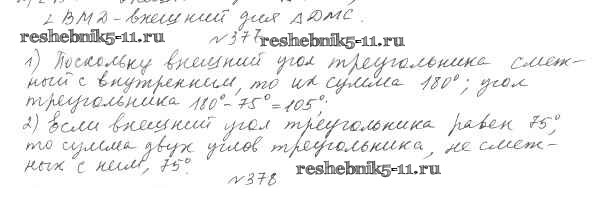 ∠ BMD - внешний для ΔDMC.
reshebnik5-11.ru №377 reshebnik5-11.ru
1) Поскольку внешний угол треугольника смеж-
ный с внутренним, то их сумма 180°; угол
треугольника 180° - 75° = 105°;
2) Если внешний угол треугольника равен 75°,
то сумма двух углов треугольника, не смеж-
ных с ним, 75°. reshebnik5-11.ru
№378